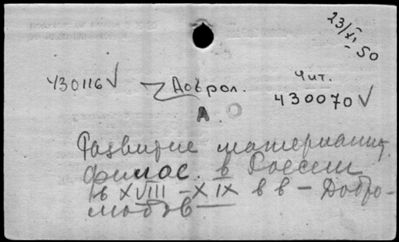 23/XI-50
430116 V Доброл. Чит.
430070 V
А
Развитие материалит.
филос. в России
в XVIII-XIX в в - Добро-
любов